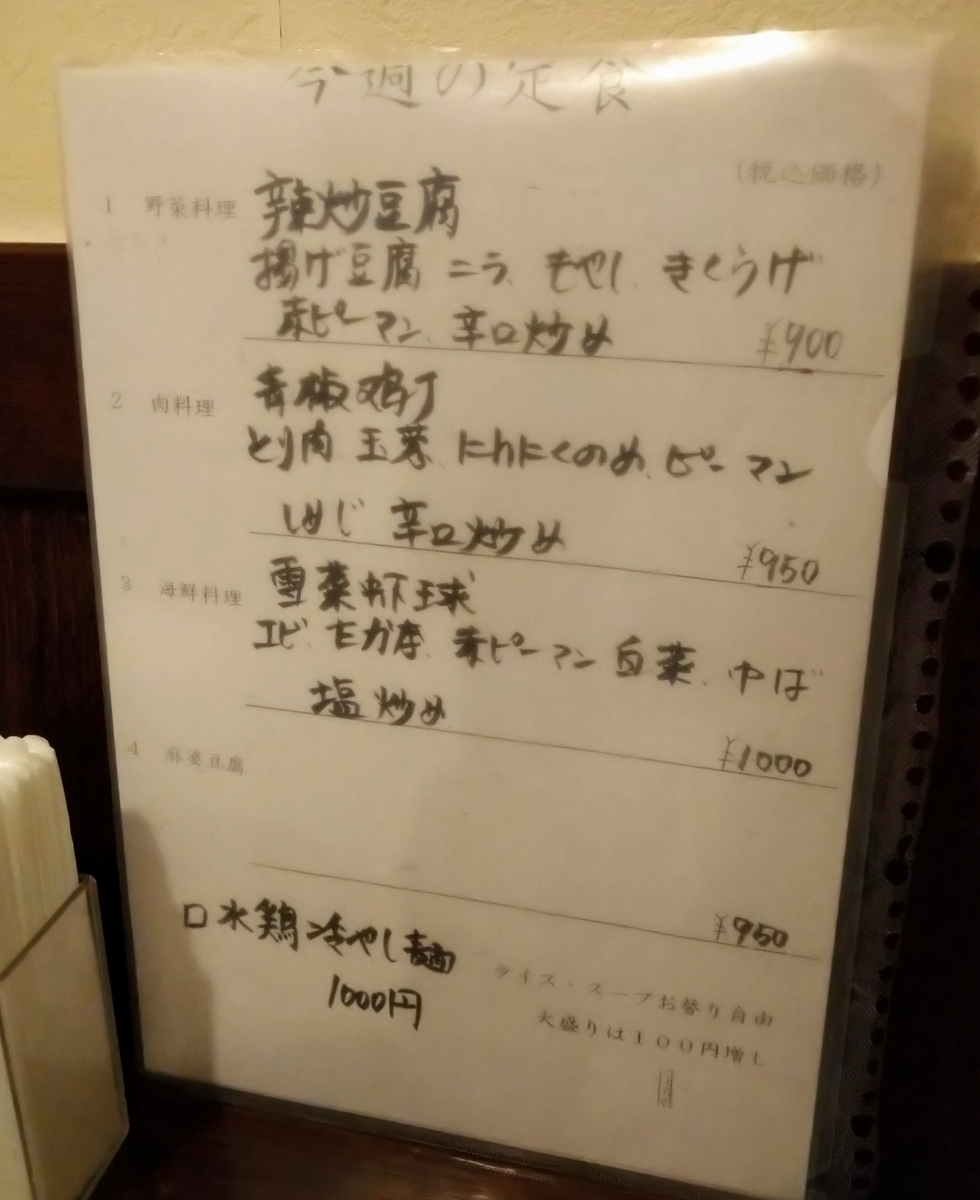 今週の定食
(税込価格)
1 野菜料理 辣炒豆腐
揚げ豆腐 ニラ、もやし、きくらげ
赤ピーマン、辛口炒め ¥900
2 肉料理 青椒鸡丁
とり肉 玉葱、にんにくのめ、ピーマン
しめじ 辛口炒め ¥950
3 海鮮料理 雪菜虾球
エビ、高菜、赤ピーマン 白菜、ゆば
塩炒め ¥1000
4 麻婆豆腐
¥950
口水鶏冷やし麺
1000円
ライス・スープお替り自由
大盛りは100円増し